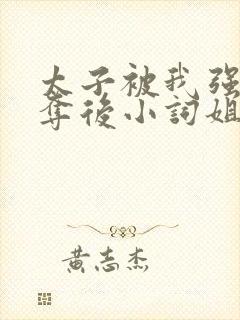 太子被我强
夺後小詞姐
黄志杰